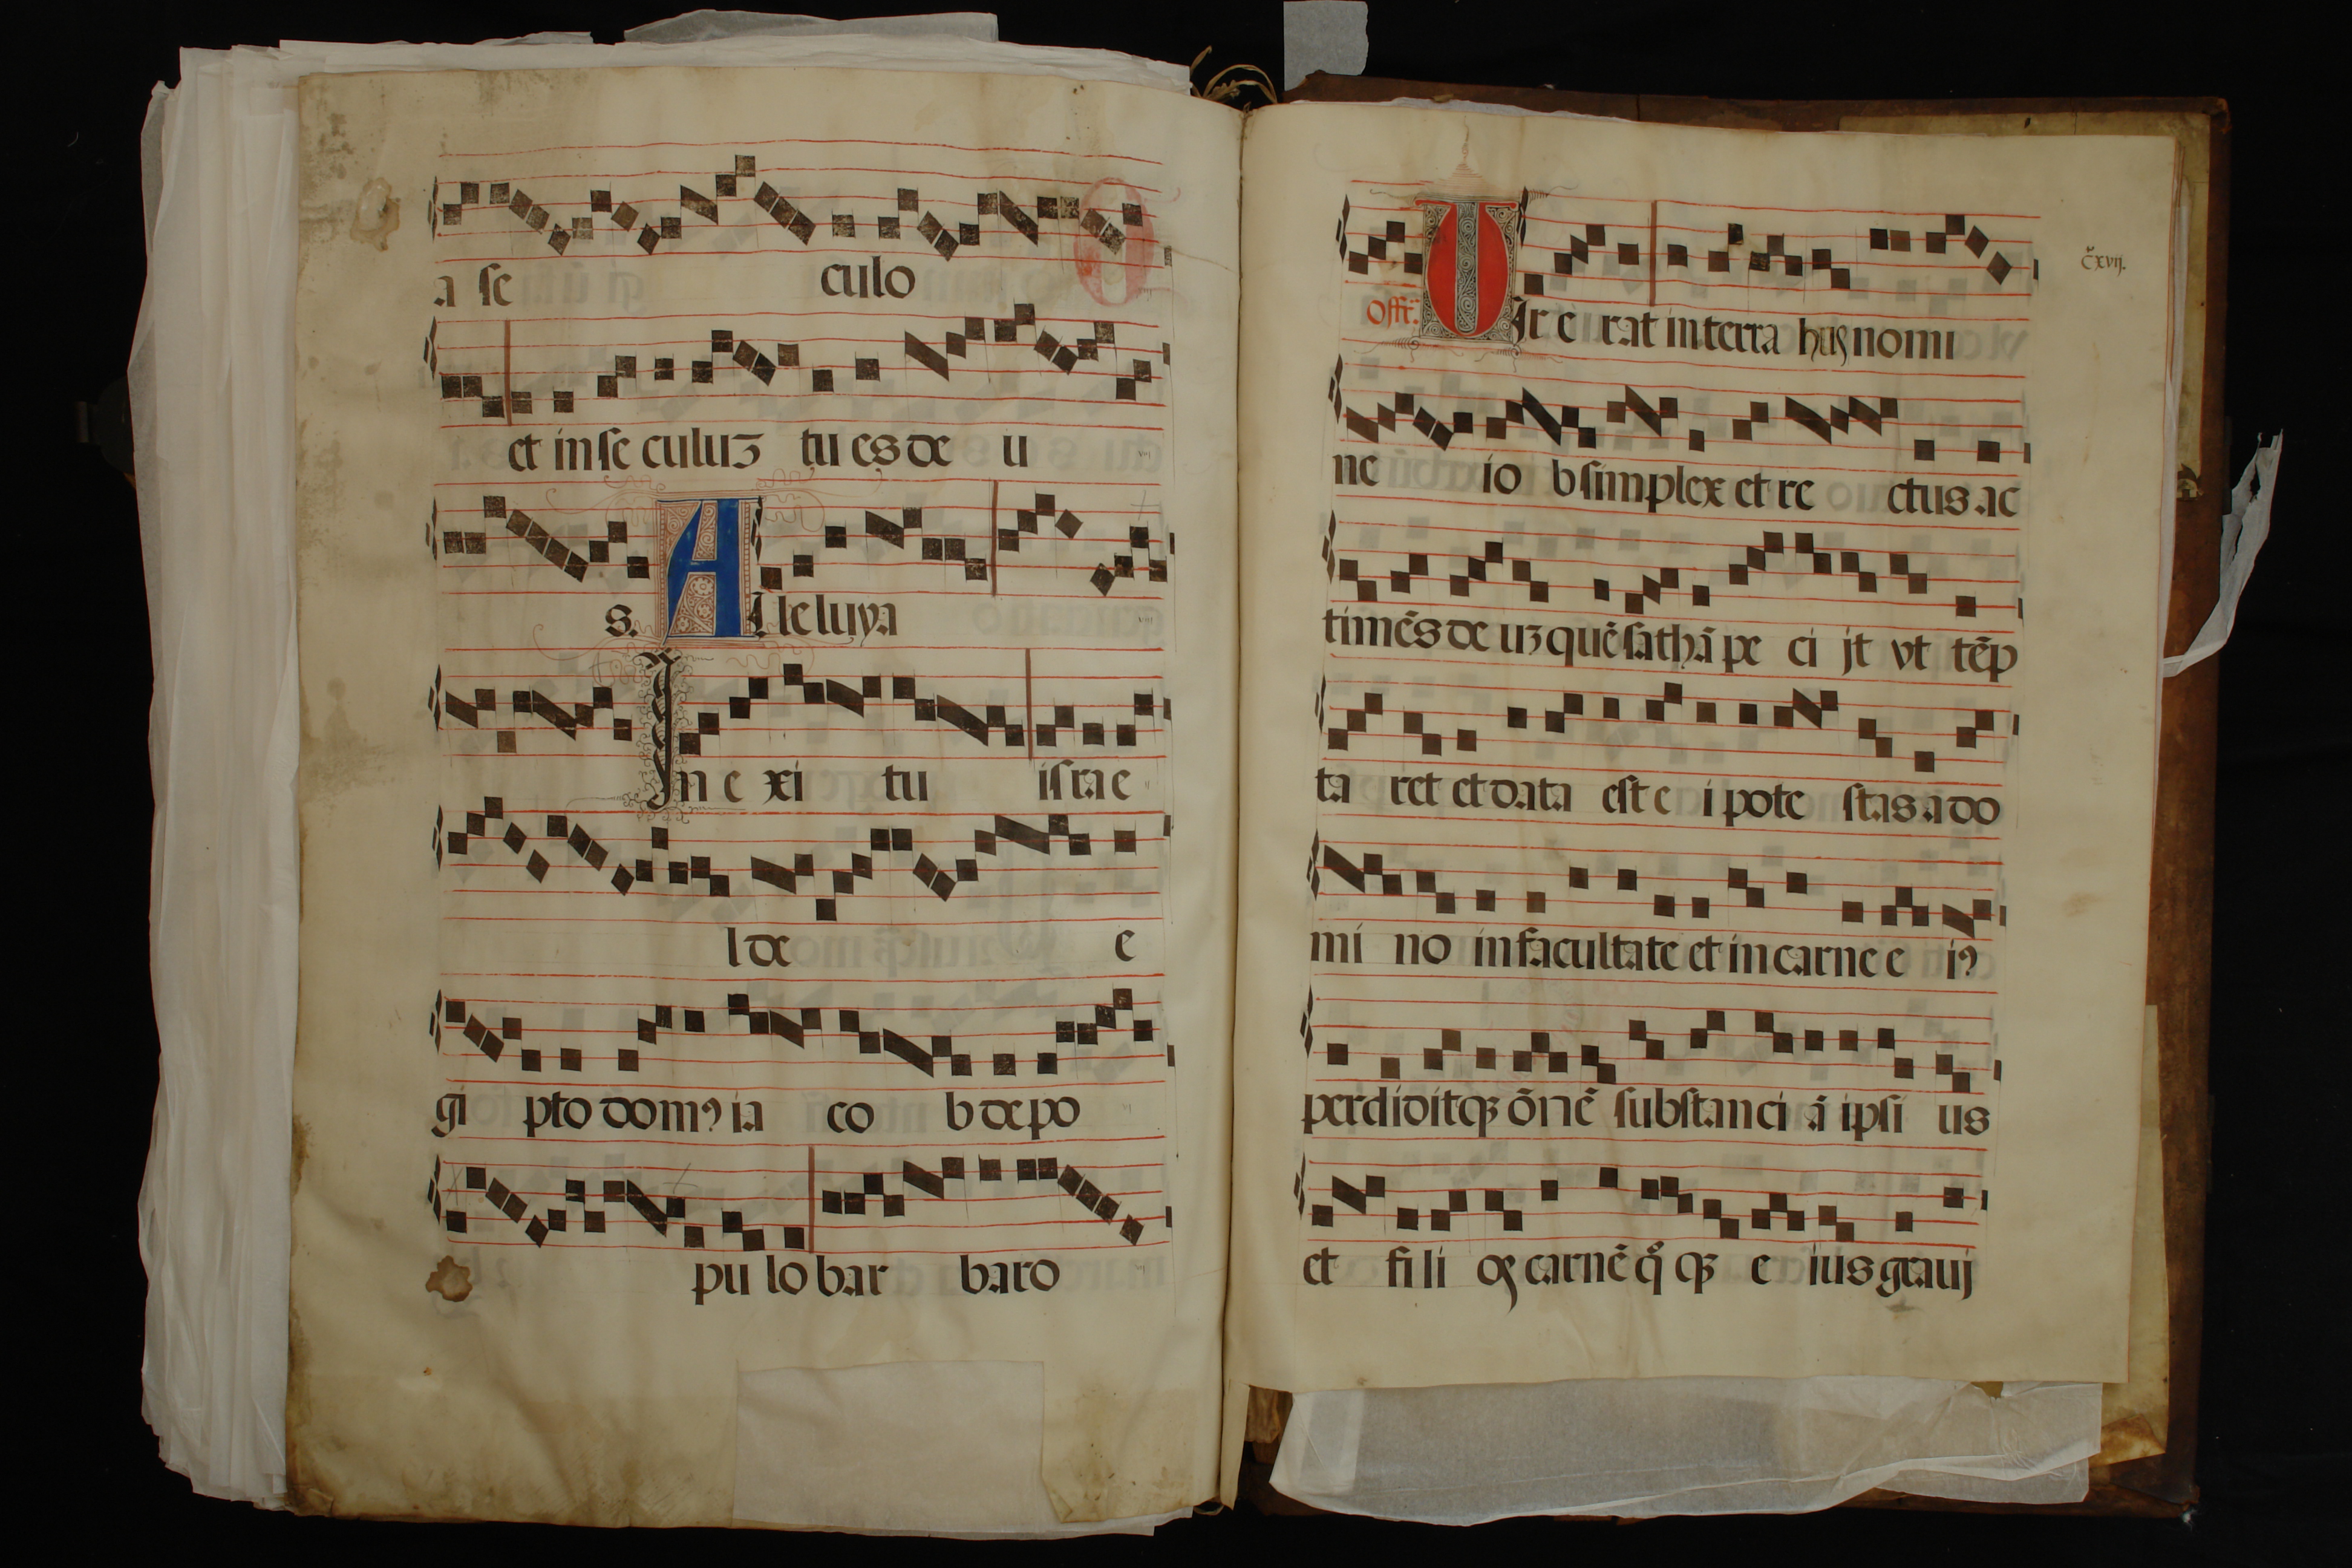 a se culo
et in se culuz tu es de u
s. Alleluya
In e xi tu israe
l de e
gi pto domꝰ ia co b de po
pu lo bar baro
c̃xvij.
Off̃. UIr e rat in terra nomi
ne io b simplex et re ctus ac
timẽs de uz quẽ sathã pe ci jt vt tẽp
ta ret et data est e i pote stas a do
mi no in facultate et in carne e iꝰ
perdiditqꝫ õnẽ substanci ã ipsi us
et fi li oꝝ carnẽ q̊ qꝫ e ius graui